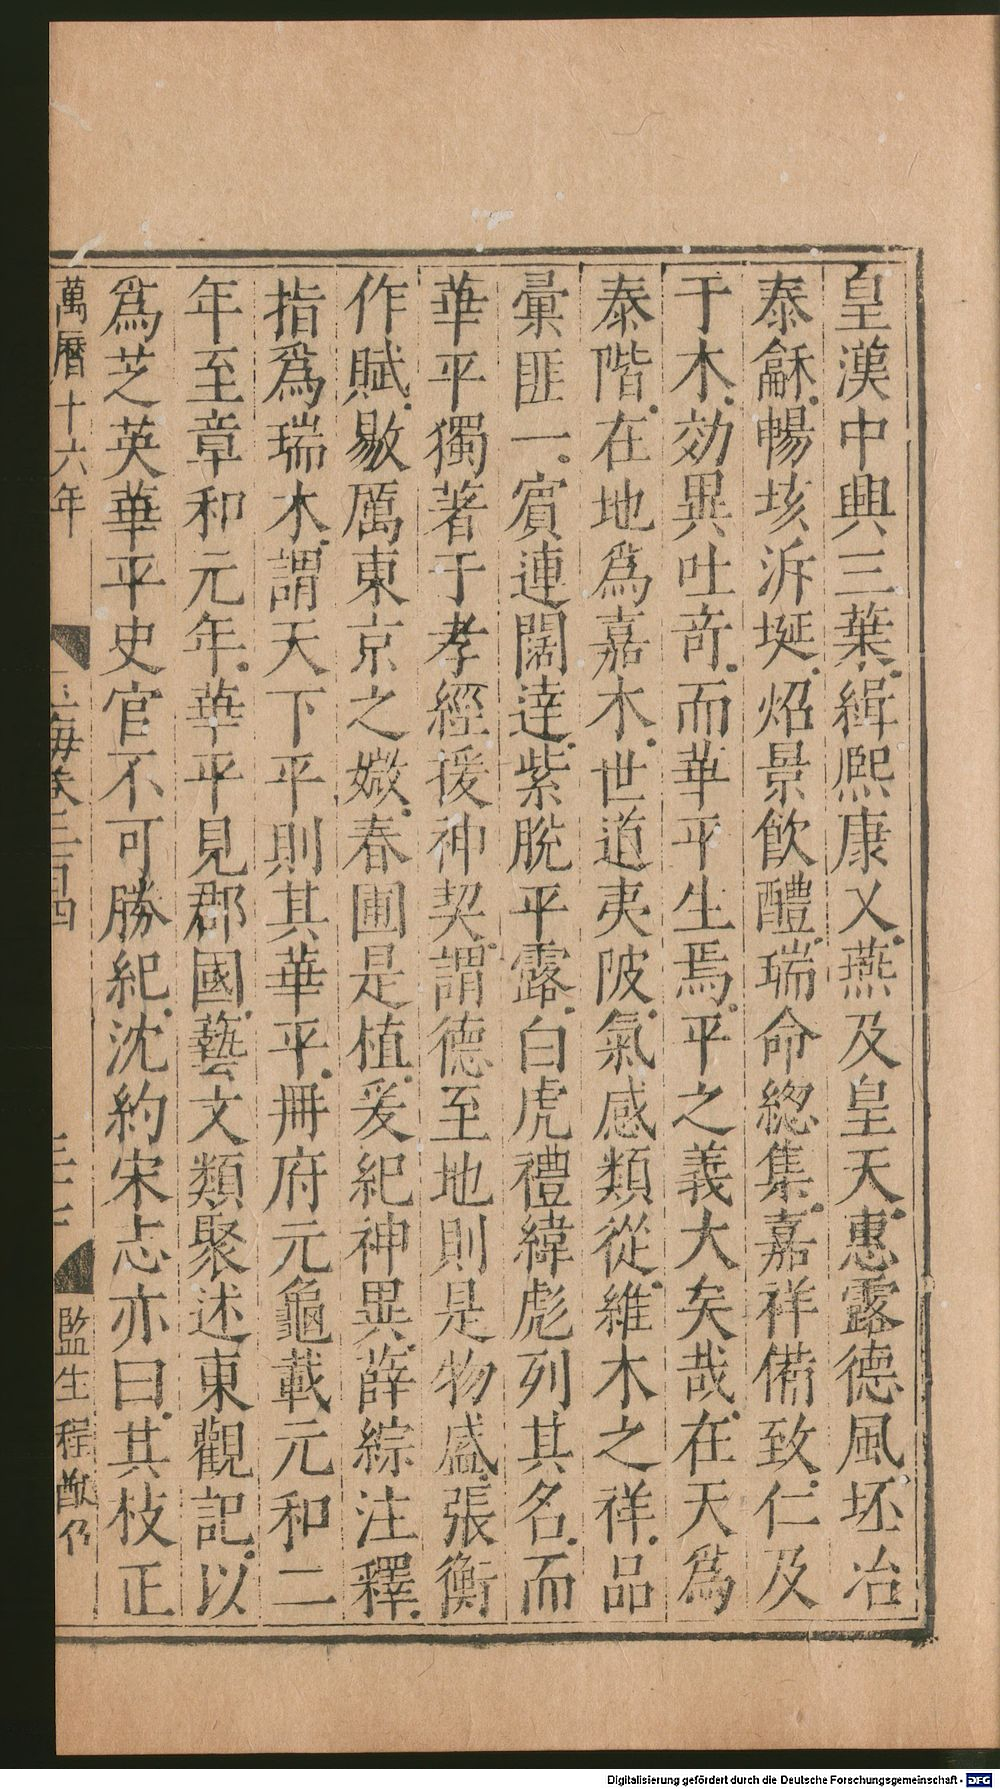 皇漢中興三葉緝熙康乂燕及皇天惠露德風坯冶
泰龢暢垓泝埏炤景飲醴瑞命緫集嘉祥備致仁及
于木效異吐竒而華平生焉平之義大矣哉在天爲
泰階在地爲嘉木世道夷陂氣感類從維木之祥品
彙匪一賓連闊達紫脫平露白虎禮緯彪列其名而
華平獨著于孝經援神契謂德至地則是物盛張衡
作賦敭厲東京之媺春圃是植爰紀神異薛綜注釋
指爲瑞木謂天下平則其華平冊府元龜載元和二
年至章和元年華平見郡國藝文類聚述東觀記以
爲芝英華平史官不可勝紀沈約宋志亦曰其枝正
萬曆十六年
玉海卷二百四
監生程猷仍
Digitalisierung gefördert durch die Deutsche Forschungsgemeinschaft - DFG